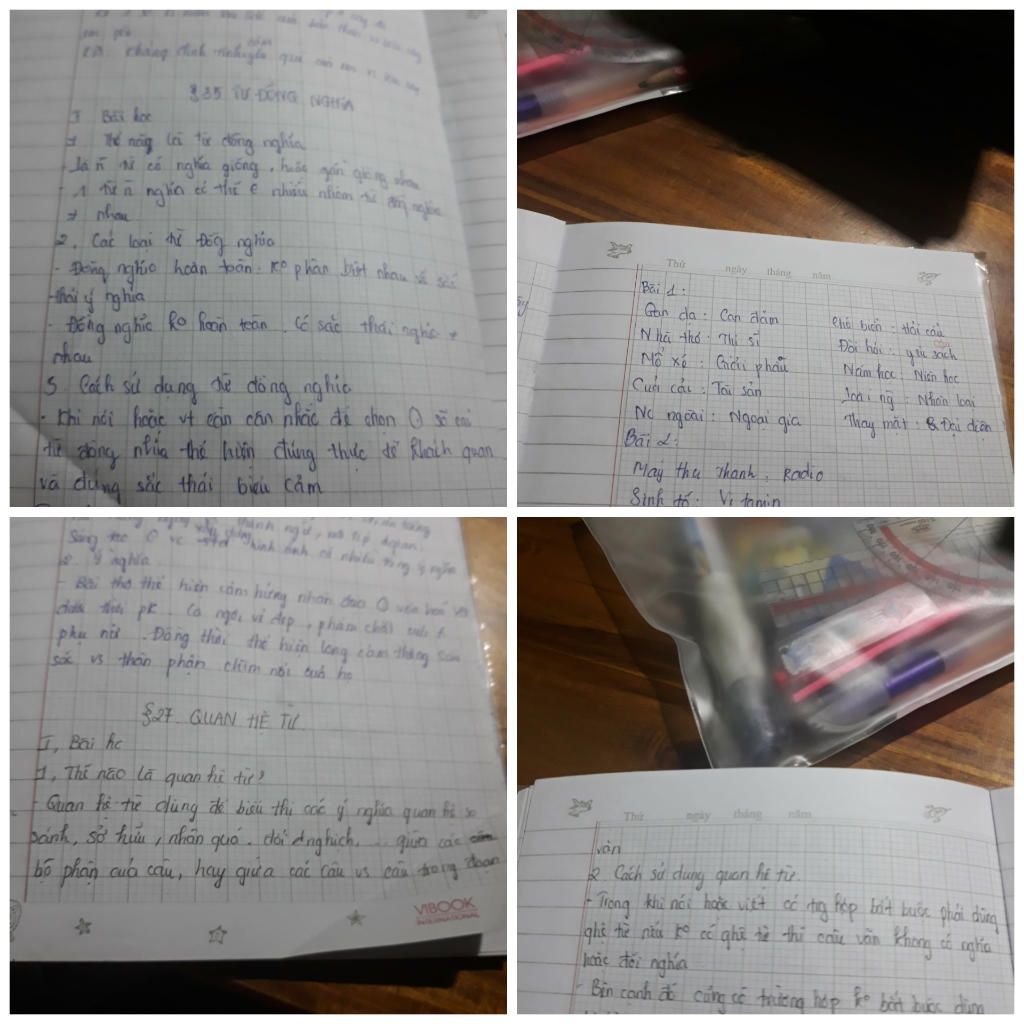 KĐ khẳng định tình cảm
§ 35 TỪ ĐỒNG NGHĨA
I Bài học
1 Thế nào là từ đồng nghĩa
- Là n từ có nghĩa giống, hoặc gần giống nhau
- 1 từ n nghĩa có thể € nhiều nhóm từ đồng nghĩa
≠ nhau
2. Các loại từ đồg nghĩa
- Đồng nghĩa hoàn toàn: ko phân biệt nhau về sắc
thái ý nghĩa
- Đồng nghĩa ko hoàn toàn. Có sắc thái nghĩa ≠
nhau
3. Cách sử dụng từ đồng nghĩa
- Khi nói hoặc vt cần cân nhắc để chọn số các
từ đồng nghĩa thể hiện đúng thực tế khách quan
và đúng sắc thái biểu cảm
Thứ ngày tháng năm
Bài 1:
Gan dạ: Can đảm
Nhà thơ: Thi sĩ
Mổ xẻ: Giải phẫu
Của cải: Tài sản
Nc ngoài: Ngoại gia
Chó biển: Hải cẩu
Đòi hỏi: yêu sách
Năm học: Niên học
Loài ng: Nhân loại
Thay mặt: Đại diện
Bài 2:
Máy thu thanh: Radio
Sinh tố: Vi tamin
thành ngữ, mô típ dân gian
Sáng tạo vc hình ảnh có nhiều tầng ý nghĩa
2. Ý nghĩa
- Bài thơ thể hiện cảm hứng nhân đạo văn học
dưới thời pk. Ca ngợi vẻ đẹp, phẩm chất
phụ nữ. Đồng thời thể hiện lòng cảm thông sâu
sắc vs thân phận chìm nổi của họ
§ 27 QUAN HỆ TỪ
I, Bài hc
1, Thế nào là quan hệ từ?
- Quan hệ từ dùng để biểu thị các ý nghĩa quan hệ so
sánh, sở hữu, nhân quả, đối nghịch, ... giữa các
bộ phận của câu, hay giữa các câu vs câu trong đoạn
VIBOOK
INTERNATIONAL
Thứ ngày tháng năm
văn
2 Cách sử dụng quan hệ từ.
- Trong khi nói hoặc viết có trg hợp bắt buộc phải dùng
qhệ từ nếu ko có qhệ từ thì câu văn không có nghĩa
hoặc đổi nghĩa
- Bên cạnh đó cũng có trường hợp ko bắt buộc dùng